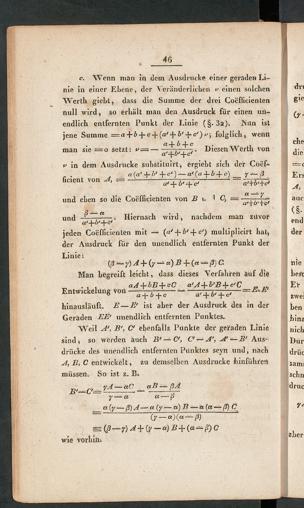 46
c. Wenn man in dem Ausdrucke einer geraden Li-
nie in einer Ebene, der Veränderlichen ν einen solchen
Werth giebt, dass die Summe der drei Coëfficienten
null wird, so erhält man den Ausdruck für einen un-
endlich entfernten Punkt der Linie (§. 32). Nun ist
jene Summe = a + b + c + (a' + b' + c') ν; folglich, wenn
man sie = o setzt: ν = − (a + b + c)/(a' + b' + c'). Diesen Werth von
ν in dem Ausdrucke substituirt, ergiebt sich der Coëf-
ficient von A, = (a(a' + b' + c') − a'(a + b + c))/(a' + b' + c') = (γ − β)/(a' + b' + c')
und eben so die Coëfficienten von B u. C, = (α − γ)/(a' + b' + c')
und (β − α)/(a' + b' + c'). Hiernach wird, nachdem man zuvor
jeden Coëfficienten mit − (a' + b' + c') multiplicirt hat,
der Ausdruck für den unendlich entfernten Punkt der
Linie:
(β − γ) A + (γ − α) B + (α − β) C.
Man begreift leicht, dass dieses Verfahren auf die
Entwickelung von (aA + bB + cC)/(a + b + c) − (a'A + b'B + c'C)/(a' + b' + c') = E − E'
hinausläuft. E − E' ist aber der Ausdruck des in der
Geraden EE' unendlich entfernten Punktes.
Weil A', B', C' ebenfalls Punkte der geraden Linie
sind, so werden auch B' − C', C' − A', A' − B' Aus-
drücke des unendlich entfernten Punktes seyn und, nach
A, B, C entwickelt, zu demselben Ausdrucke hinführen
müssen. So ist z. B.
B' − C' = (γA − αC)/(γ − α) − (αB − βA)/(α − β)
= (α (γ − β) A − α (γ − α) B − α (α − β) C)/((γ − α)(α − β))
≡ (β − γ) A + (γ − α) B + (α − β) C
wie vorhin.